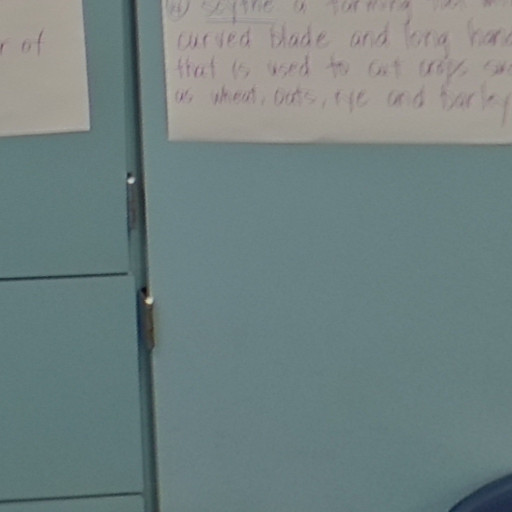 r of
scythe a farming
curved blade and long
that is used to cut crops
as wheat, oats, rye and barley